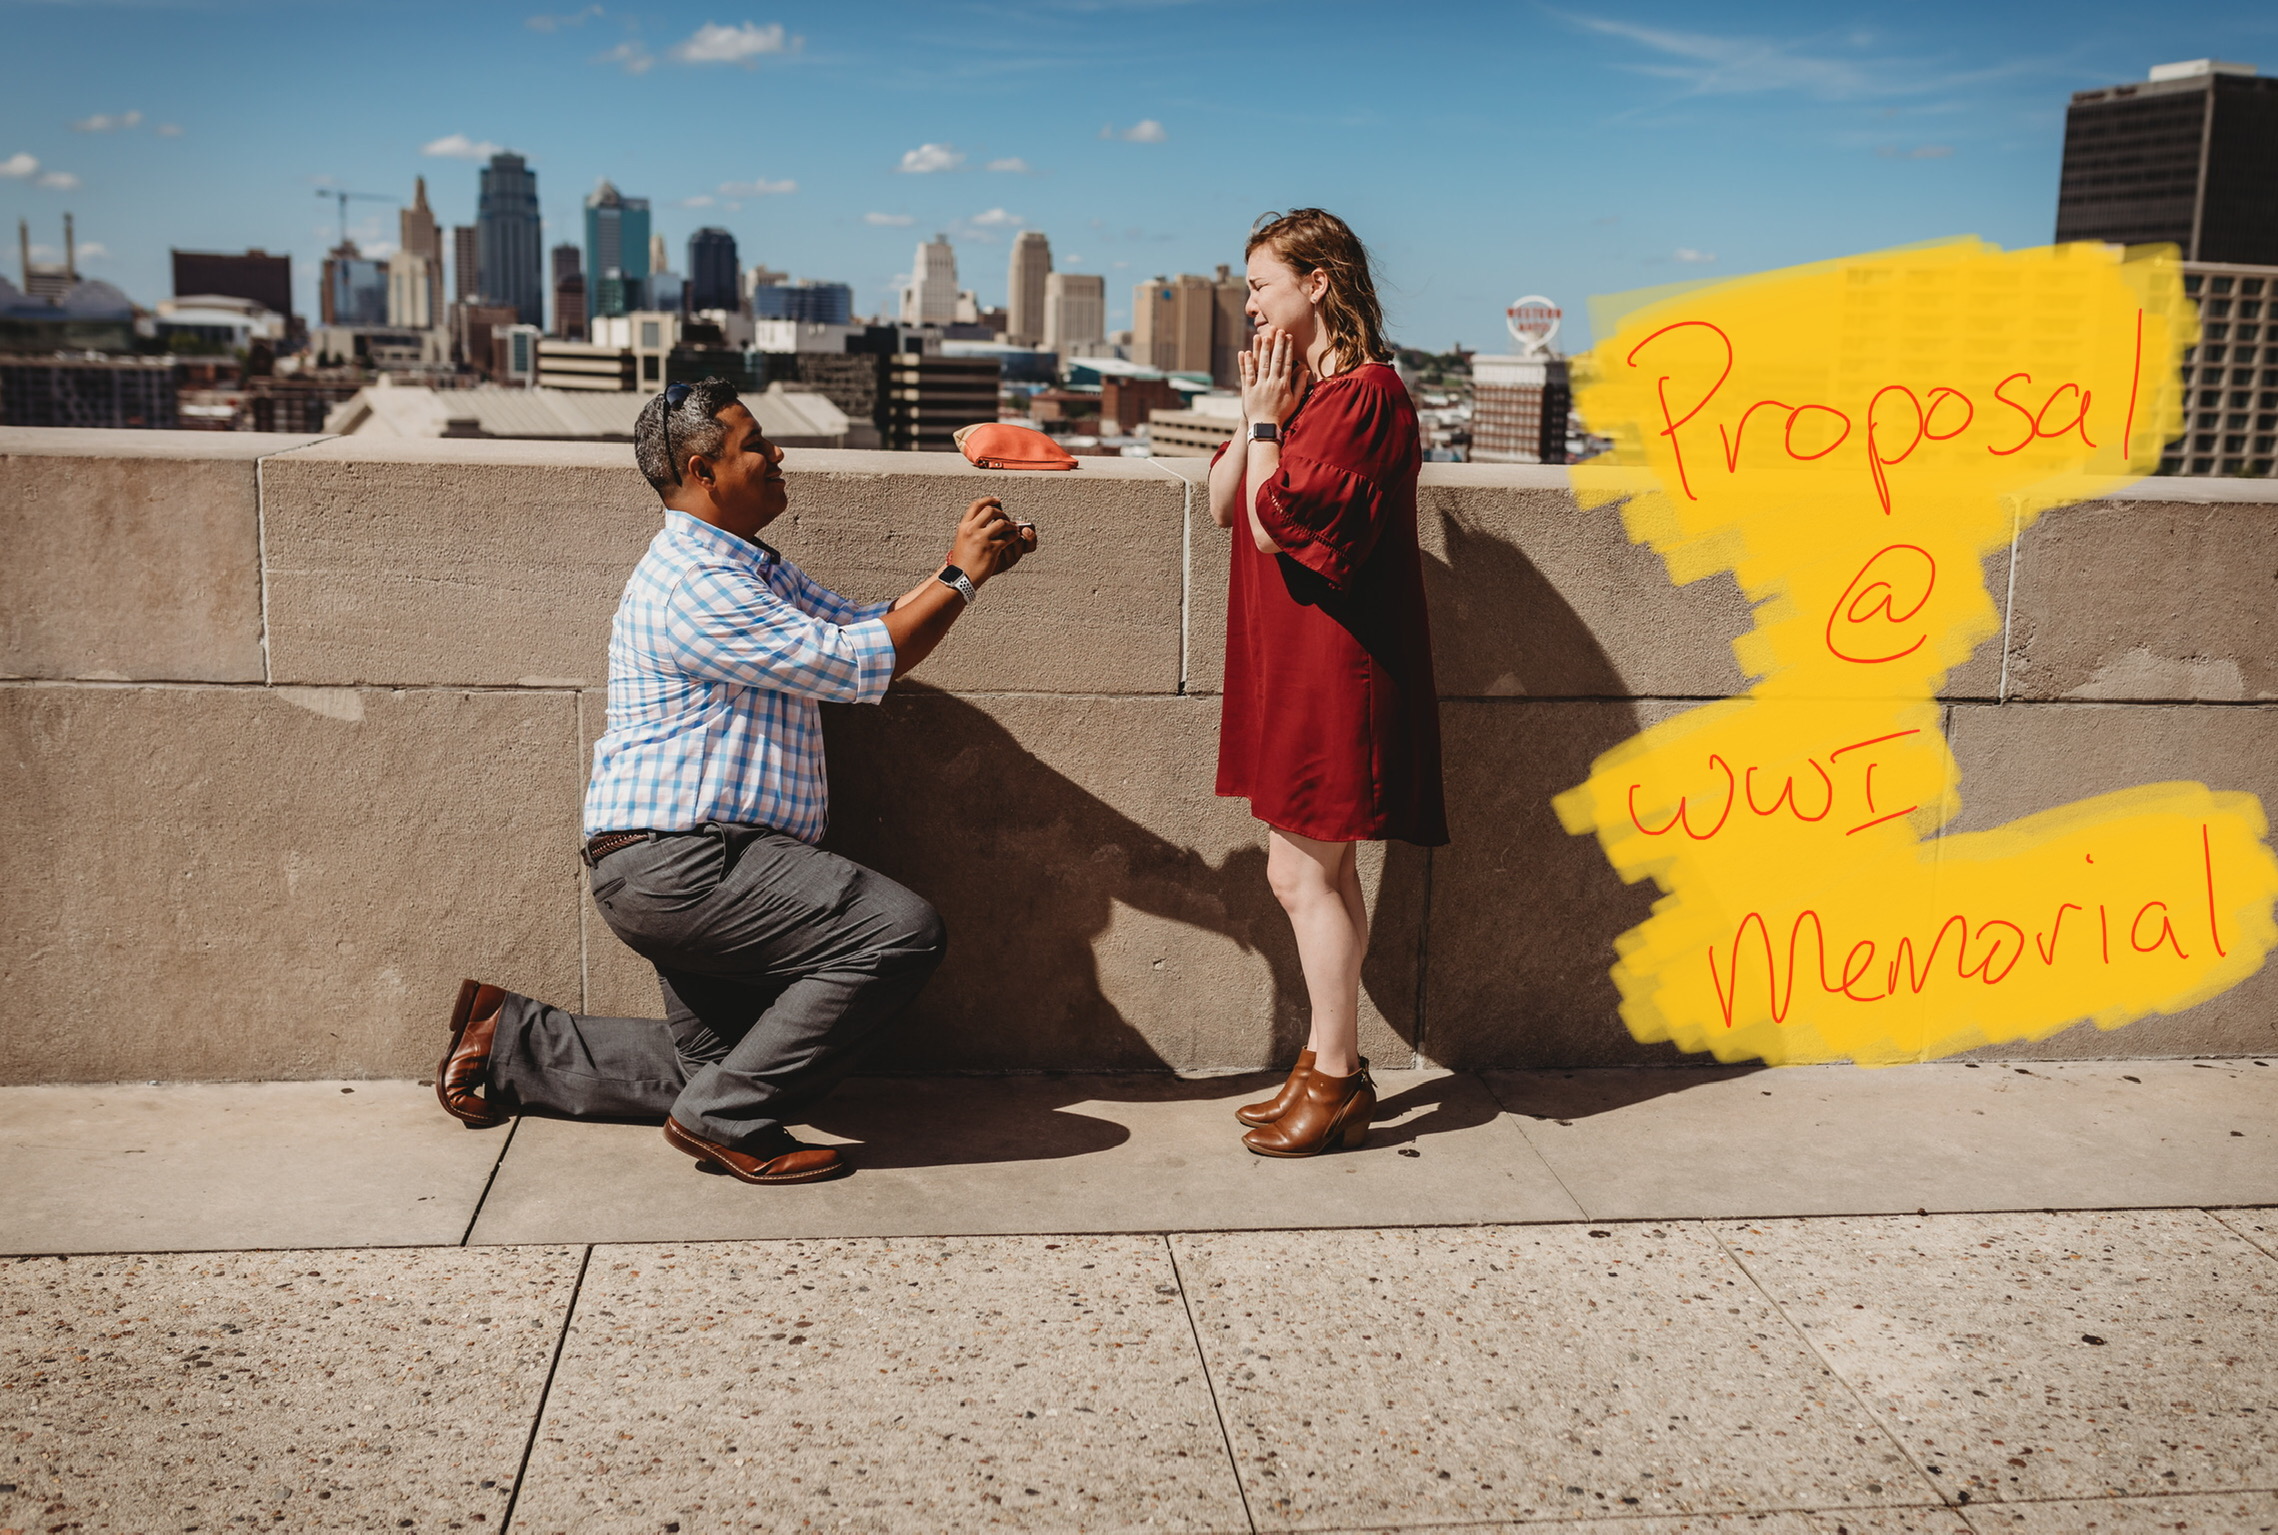 Proposal
@
WWI
Memorial